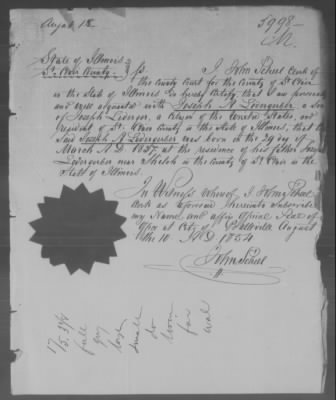 August 18
5998
State of Illinois
St Clair County } ss
I John Scheel Clerk of
the County Court for the County of St Clair
in the State of Illinois do hereby Certify that I am personally
and well acquainted with Joseph A a son
of Joseph a citizen of the United States, and
resident of St. Clair County in the State of Illinois, that the
said Joseph A was born on the day of
March A D 1837 at the residence of his father Joseph
near Shiloh in the County of St Clair in the
State of Illinois.
In Witness whereof, I John Scheel
Clerk as aforesaid hereunto Subscribe
my Name and affix Official Seal of
Office at City of Belleville August
the 10 A D 1854
John Scheel
full
gray
small
do
fair
oval